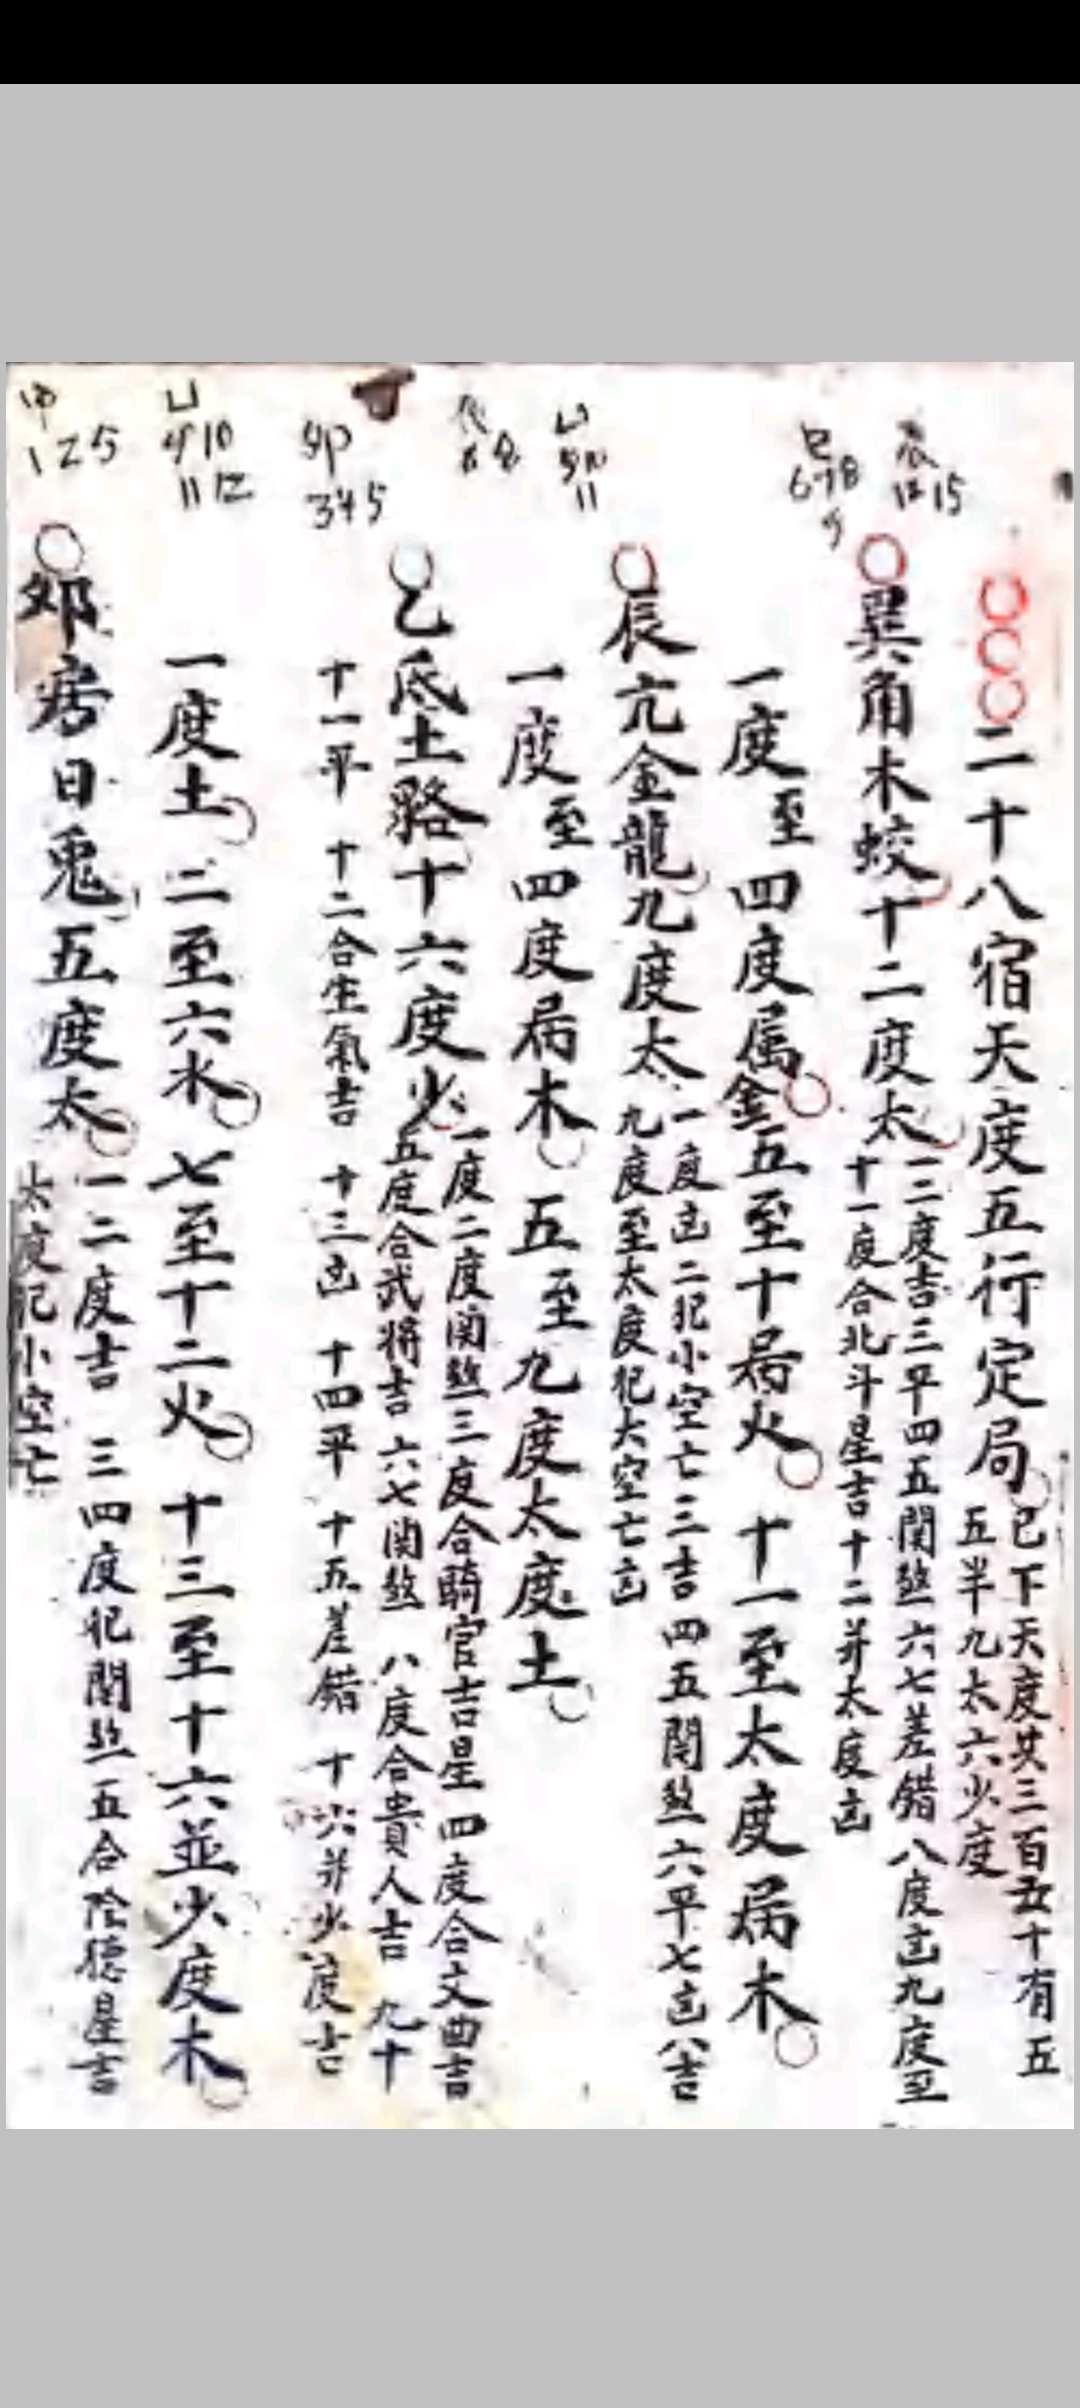 二十八宿天度五行定局
已下天度共三百五十有五
五半九太六少度
巽角木蛟十二度太
一二度吉三平四五関煞六七差错八度凶九度至
十一度合北斗星吉十二并太度凶
一度至四度属金五至十局火十一至太度局木
辰亢金龍九度太
一度凶二犯小空亡三吉四五関煞六平七凶八吉
九度至太度犯大空亡凶
一度至四度局木五至九度太度土
乙氐土骆十六度少
一度二度関煞三度合騎官吉星四度合文曲吉
五度合武將吉六七関煞八度合貴人吉九十
十一平十二合生氣吉十三凶十四平十五差错十六并少度吉
一度土二至六水七至十二火十三至十六並少度木
房日兎五度太
一二度吉三四度犯関煞五合陰德星吉
太度犯小空亡
辰
12 15
巳
678
9
山
9 10
11
卯
345
山
9 10
11 12
125